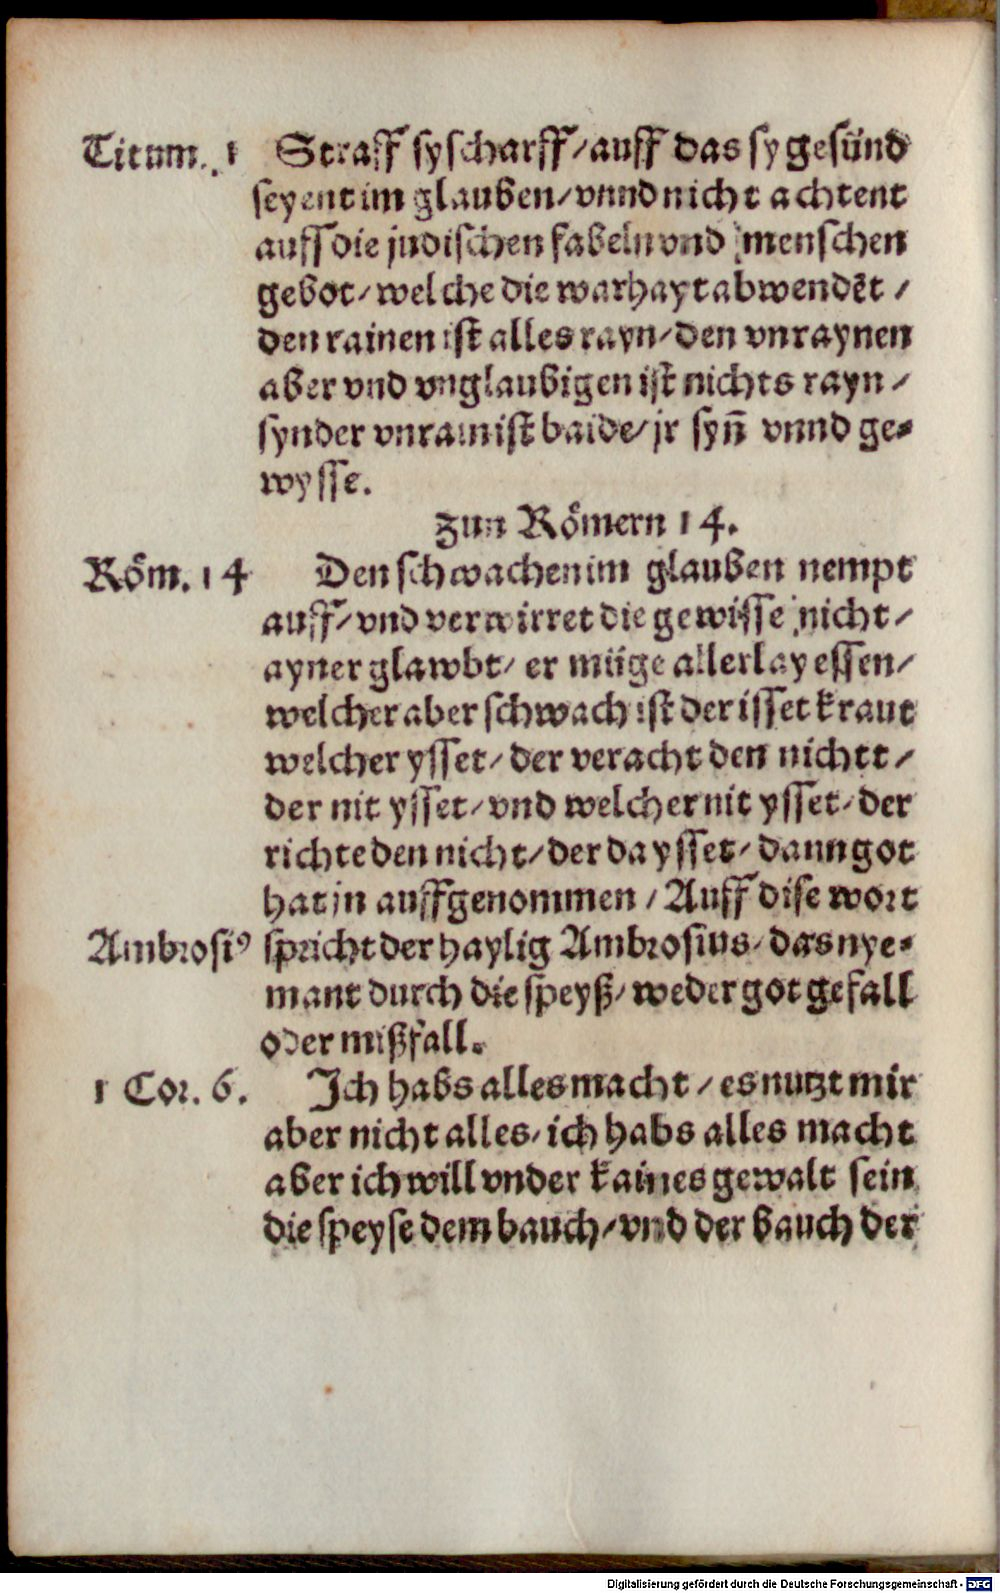 Titum. 1 Straff sy scharff / auff das sy gesünd
seyent im glauben / vnnd nicht achtent
auff die judischen fabeln vnd menschen
gebot / welche die warhayt abwendēt /
den rainen ist alles rayn / den vnraynen
aber vnd vnglaubigen ist nichts rayn /
synder vnrain ist baide / jr syn̄ vnnd ge-
wysse.
Zun Römern 14.
Röm. 14 Den schwachen im glauben nempt
auff / vnd verwirret die gewisse nicht /
ayner glawbt / er müge allerlay essen /
welcher aber schwach ist der isset kraut
welcher ysset / der veracht den nichtt /
der nit ysset / vnd welcher nit ysset / der
richte den nicht / der da ysset / dann got
hat jn auffgenommen / Auff dise wort
Ambrosiꝰ spricht der haylig Ambrosius / das nye-
mant durch die speyß / weder got gefall
oder mißfall.
1 Cor. 6. Ich habs alles macht / es nutzt mir
aber nicht alles / ich habs alles macht
aber ich will vnder kaines gewalt sein
die speyse dem bauch / vnd der bauch der
Digitalisierung gefördert durch die Deutsche Forschungsgemeinschaft - DFG